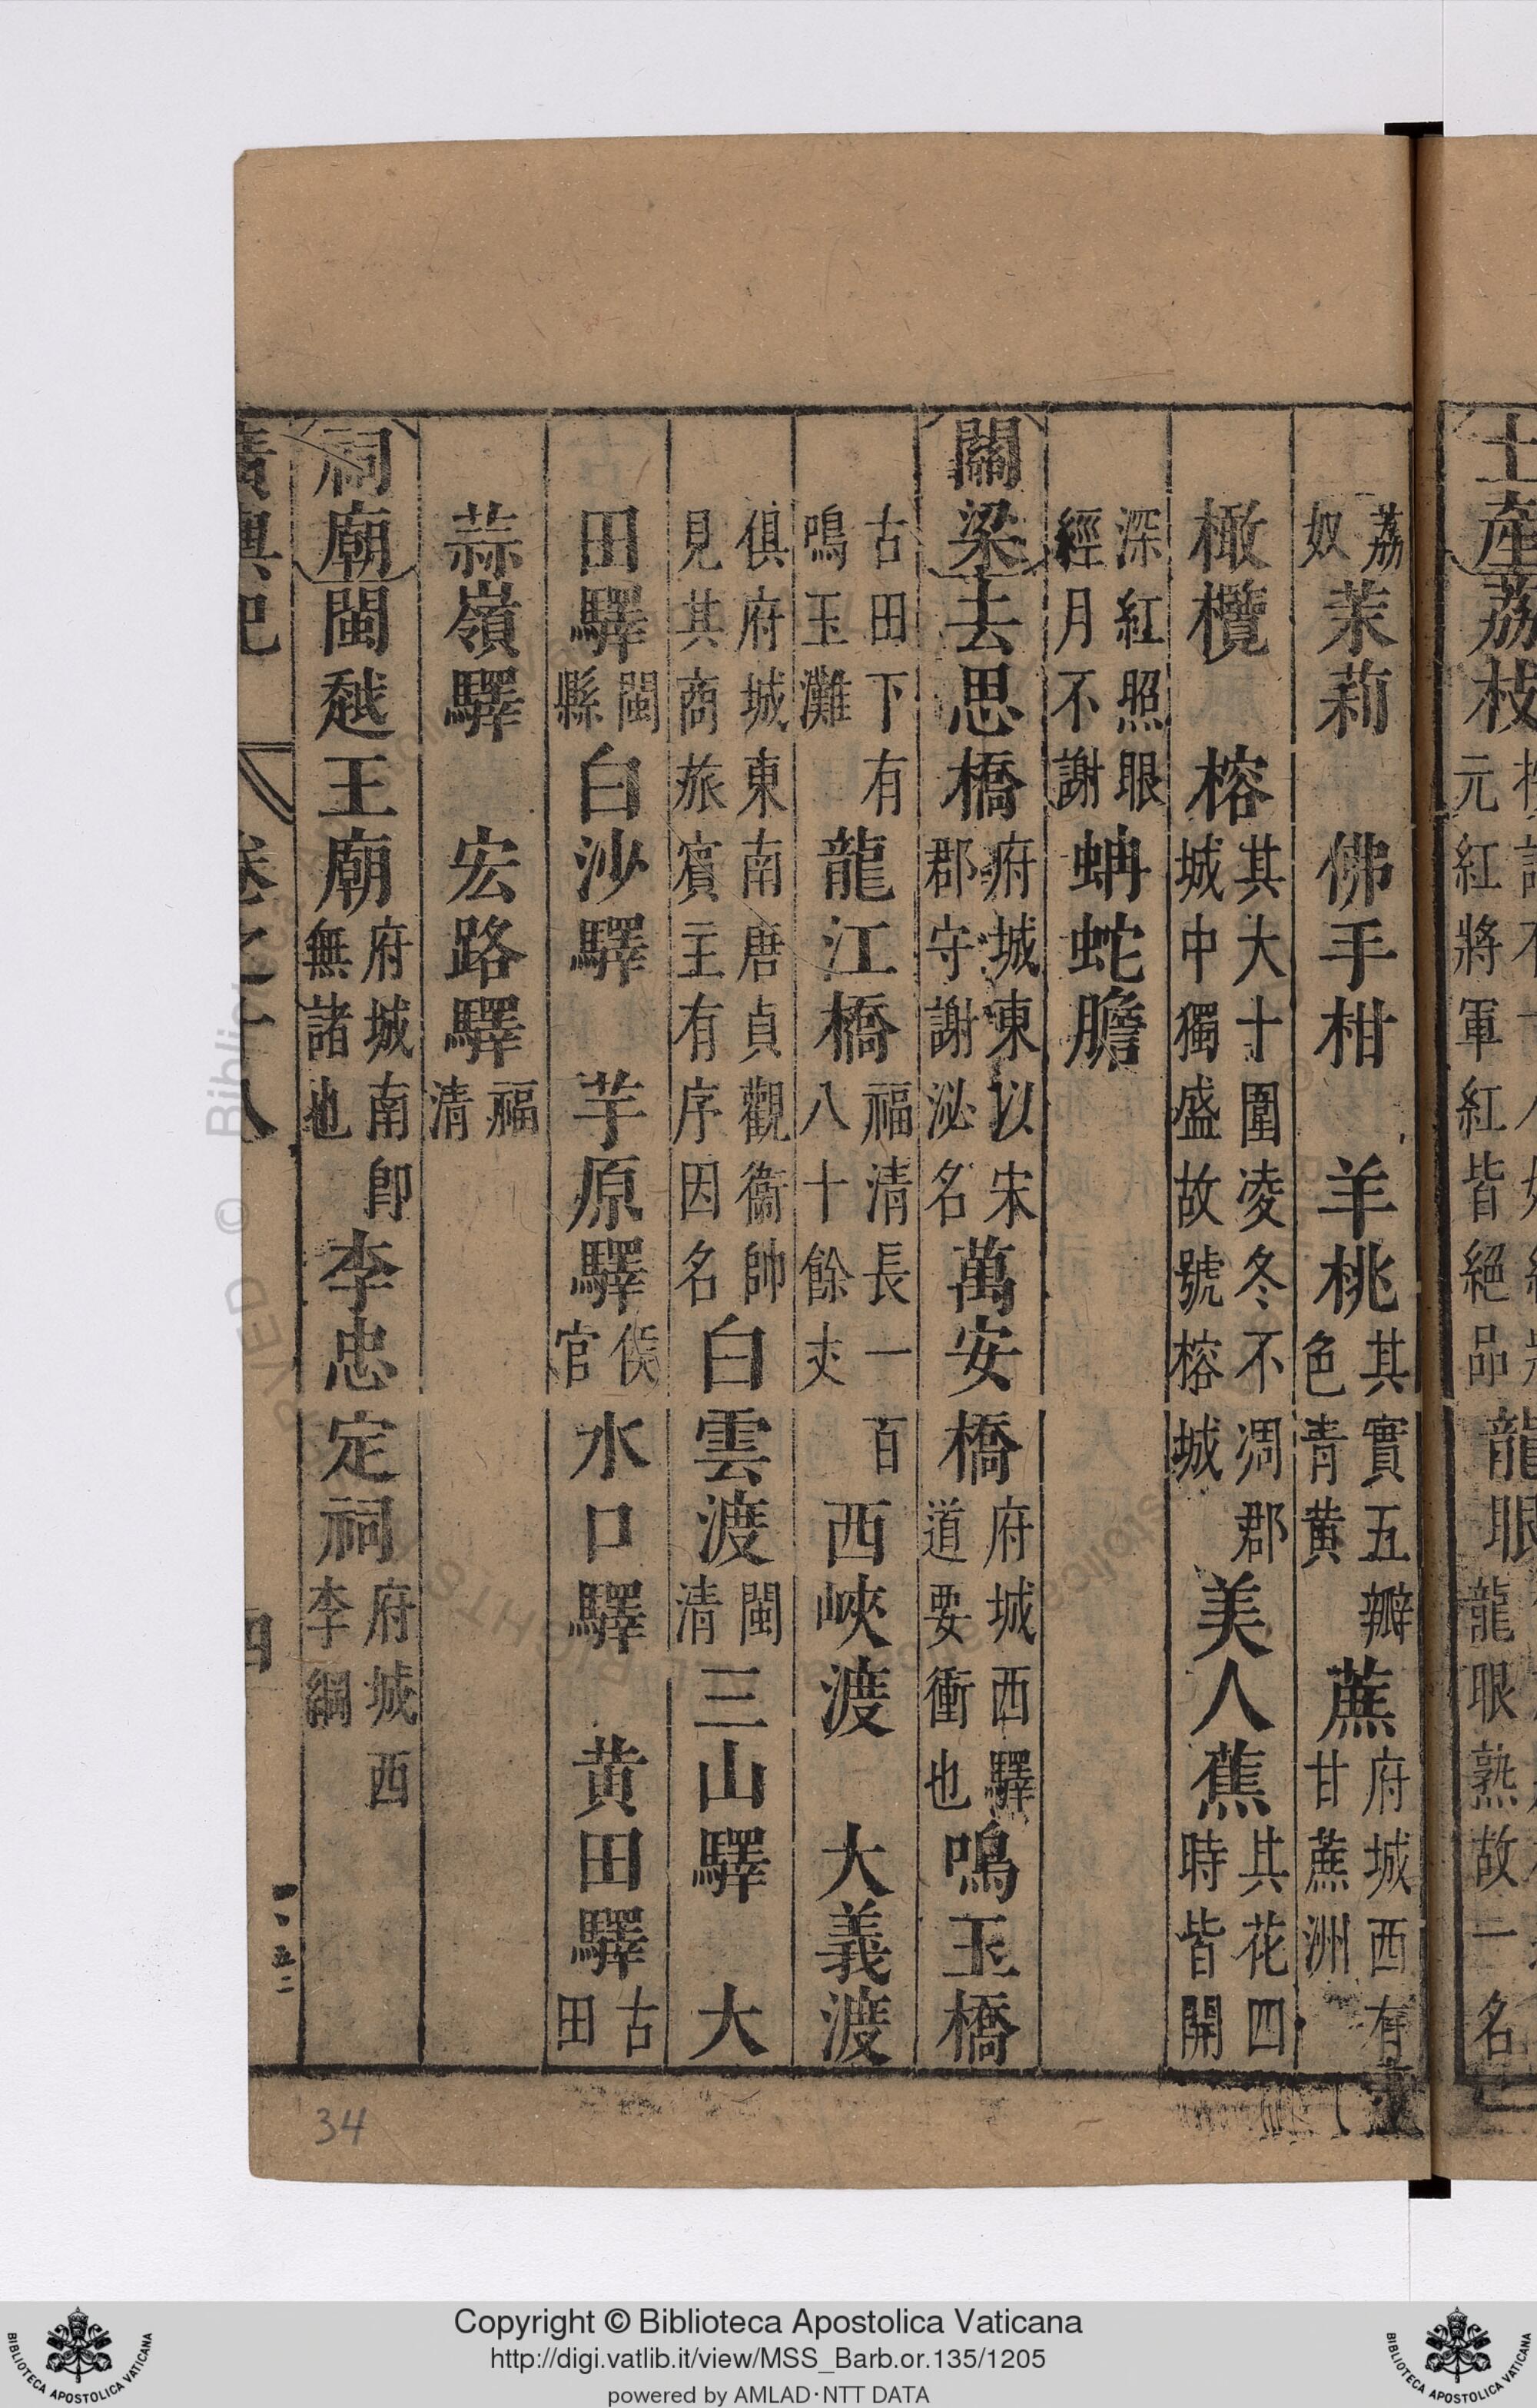 土產荔枝
元紅將軍紅皆絕品
龍眼
龍眼熟故一名
荔奴 茉莉 佛手柑 羊桃 其實五瓣色青黃 蔗 府城西有甘蔗洲
橄欖 榕 其大十圍凌冬不凋郡城中獨盛故號榕城 美人蕉 其花四時皆開
深紅照眼經月不謝 蚺蛇膽
關梁 去思橋 府城東以宋郡守謝泌名 萬安橋 府城西驛道要衝也 鳴玉橋
古田下有鳴玉灘 龍江橋 福清長一百八十餘丈 西峽渡 大義渡
俱府城東南唐貞觀衞帥見其商旅賓主有序因名 白雲渡 閩清 三山驛 大
田驛 閩縣 白沙驛 芋原驛 侯官 水口驛 黃田驛 古田
蒜嶺驛 宏路驛 福清
祠廟 閩越王廟 府城南即無諸也 李忠定祠 府城西李綱
34
Copyright © Biblioteca Apostolica Vaticana
http://digi.vatlib.it/view/MSS_Barb.or.135/1205
powered by AMLAD·NTT DATA
BIBLIOTECA APOSTOLICA VATICANA
BIBLIOTECA APOSTOLICA VATICANA